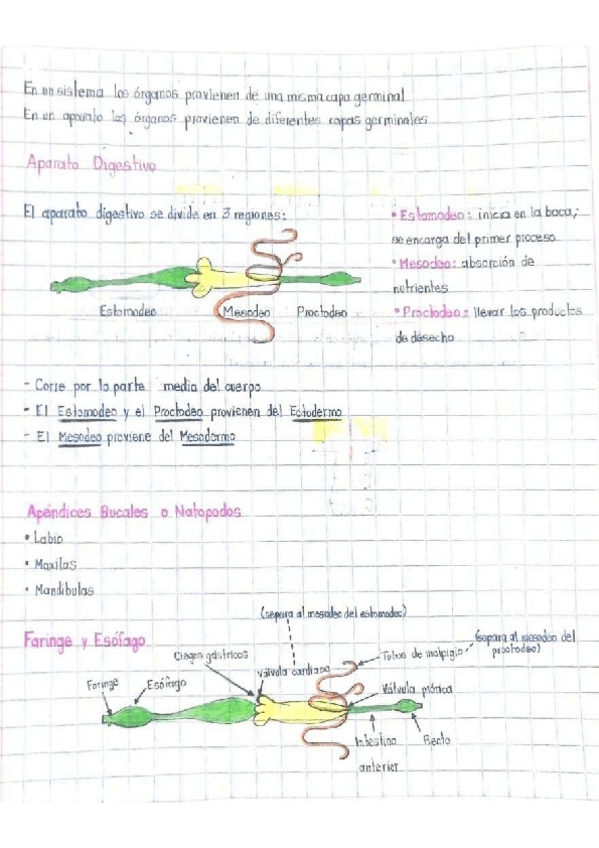 En un sistema los órganos provienen de una misma capa germinal
En un aparato los órganos provienen de diferentes capas germinales
Aparato Digestivo
El aparato digestivo se divide en 3 regiones:
• Estomodeo: inicia en la boca;
se encarga del primer proceso
• Mesodeo: absorción de
nutrientes
• Proctodeo: llevar los productos
de desecho
Estomodeo Mesodeo Proctodeo
- Corre por la parte media del cuerpo
- El Estomodeo y el Proctodeo provienen del Ectodermo
- El Mesodeo proviene del Mesodermo
Apéndices Bucales o Natopodos
• Labio
• Maxilas
• Mandibulas
Faringe y Esófago
(separa al mesodeo del estomodeo)
Ciegos gástricos
Válvula cardiaca
Tubos de malpigio
(separa al mesodeo del
proctodeo)
Faringe
Esófago
Válvula pilórica
Intestino
anterior
Recto